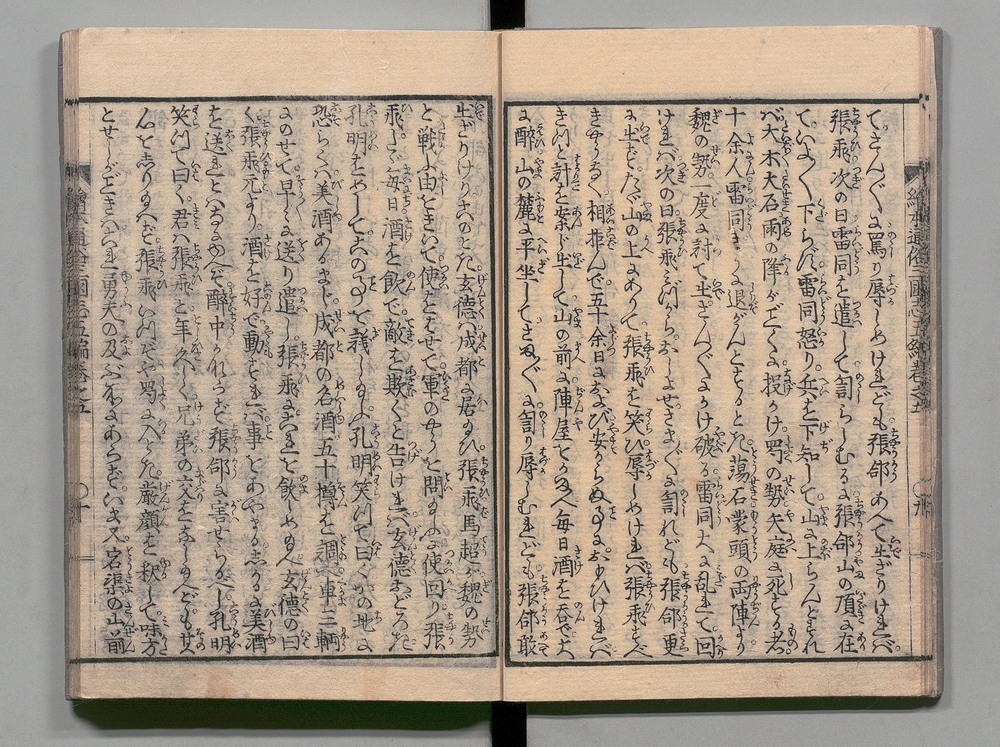 てさんざんに罵り辱しめけれども張郃あへて出ざりければ
張飛次の日雷同を遣して罰らしむるに張郃山の頂に在
ていよいよ下らず雷同怒り兵を下知して山に上らんとすれ
ば大木大石雨の降がごとくに投かけ蜀の勢矢庭に死する者
十余人雷同までに退かんとするとき蕩石蒙頭の両陣より
魏の勢一度に討て出さんざんにかけ破る雷同大に乱れて回
ければ次の日張飛みづからおしよせさまざまに罰れども張郃更
に出ずたゞ山の上にありて張飛を笑ひ辱しめければ張飛すべ
きやうなく相拒んで五十余日におよび安からぬ事におもひければ
きつと計を案じ出して山の前に陣屋をかまへ毎日酒を呑で大
に醉山の麓に平坐してさまざまに罰り辱しむれども張郃敢
出ざりけりこのとき玄德は成都に居玉ひ張飛馬超が魏の勢
と戰ふ由をきいて使をはせて軍のやうを問玉ふに使回り張
飛たゞ毎日酒を飲で敵を欺くと告ければ玄德おどろき
孔明をめして此の事を議し玉ふ孔明笑つて曰くかの地に
恐らくは美酒あるまじ成都の名酒五十樽を調へ車三輌
にのせて早々に送り遣し張飛にこれを飲しめ玉へ玄德の曰
く張飛元より酒を好で動もすれば事をあやまるしかるに美酒
を送れとはなにゆへぞ醉中かれもし張郃に害せらるべし孔明
笑つて曰く君は張飛と年久しく兄弟の交をなし玉へどもその
心をしり玉はず張飛いつぞや蜀に入とき嚴顔を釈して味方
とせしごときはこれ勇夫の及ぶ所にあらずいま又宕渠の山前